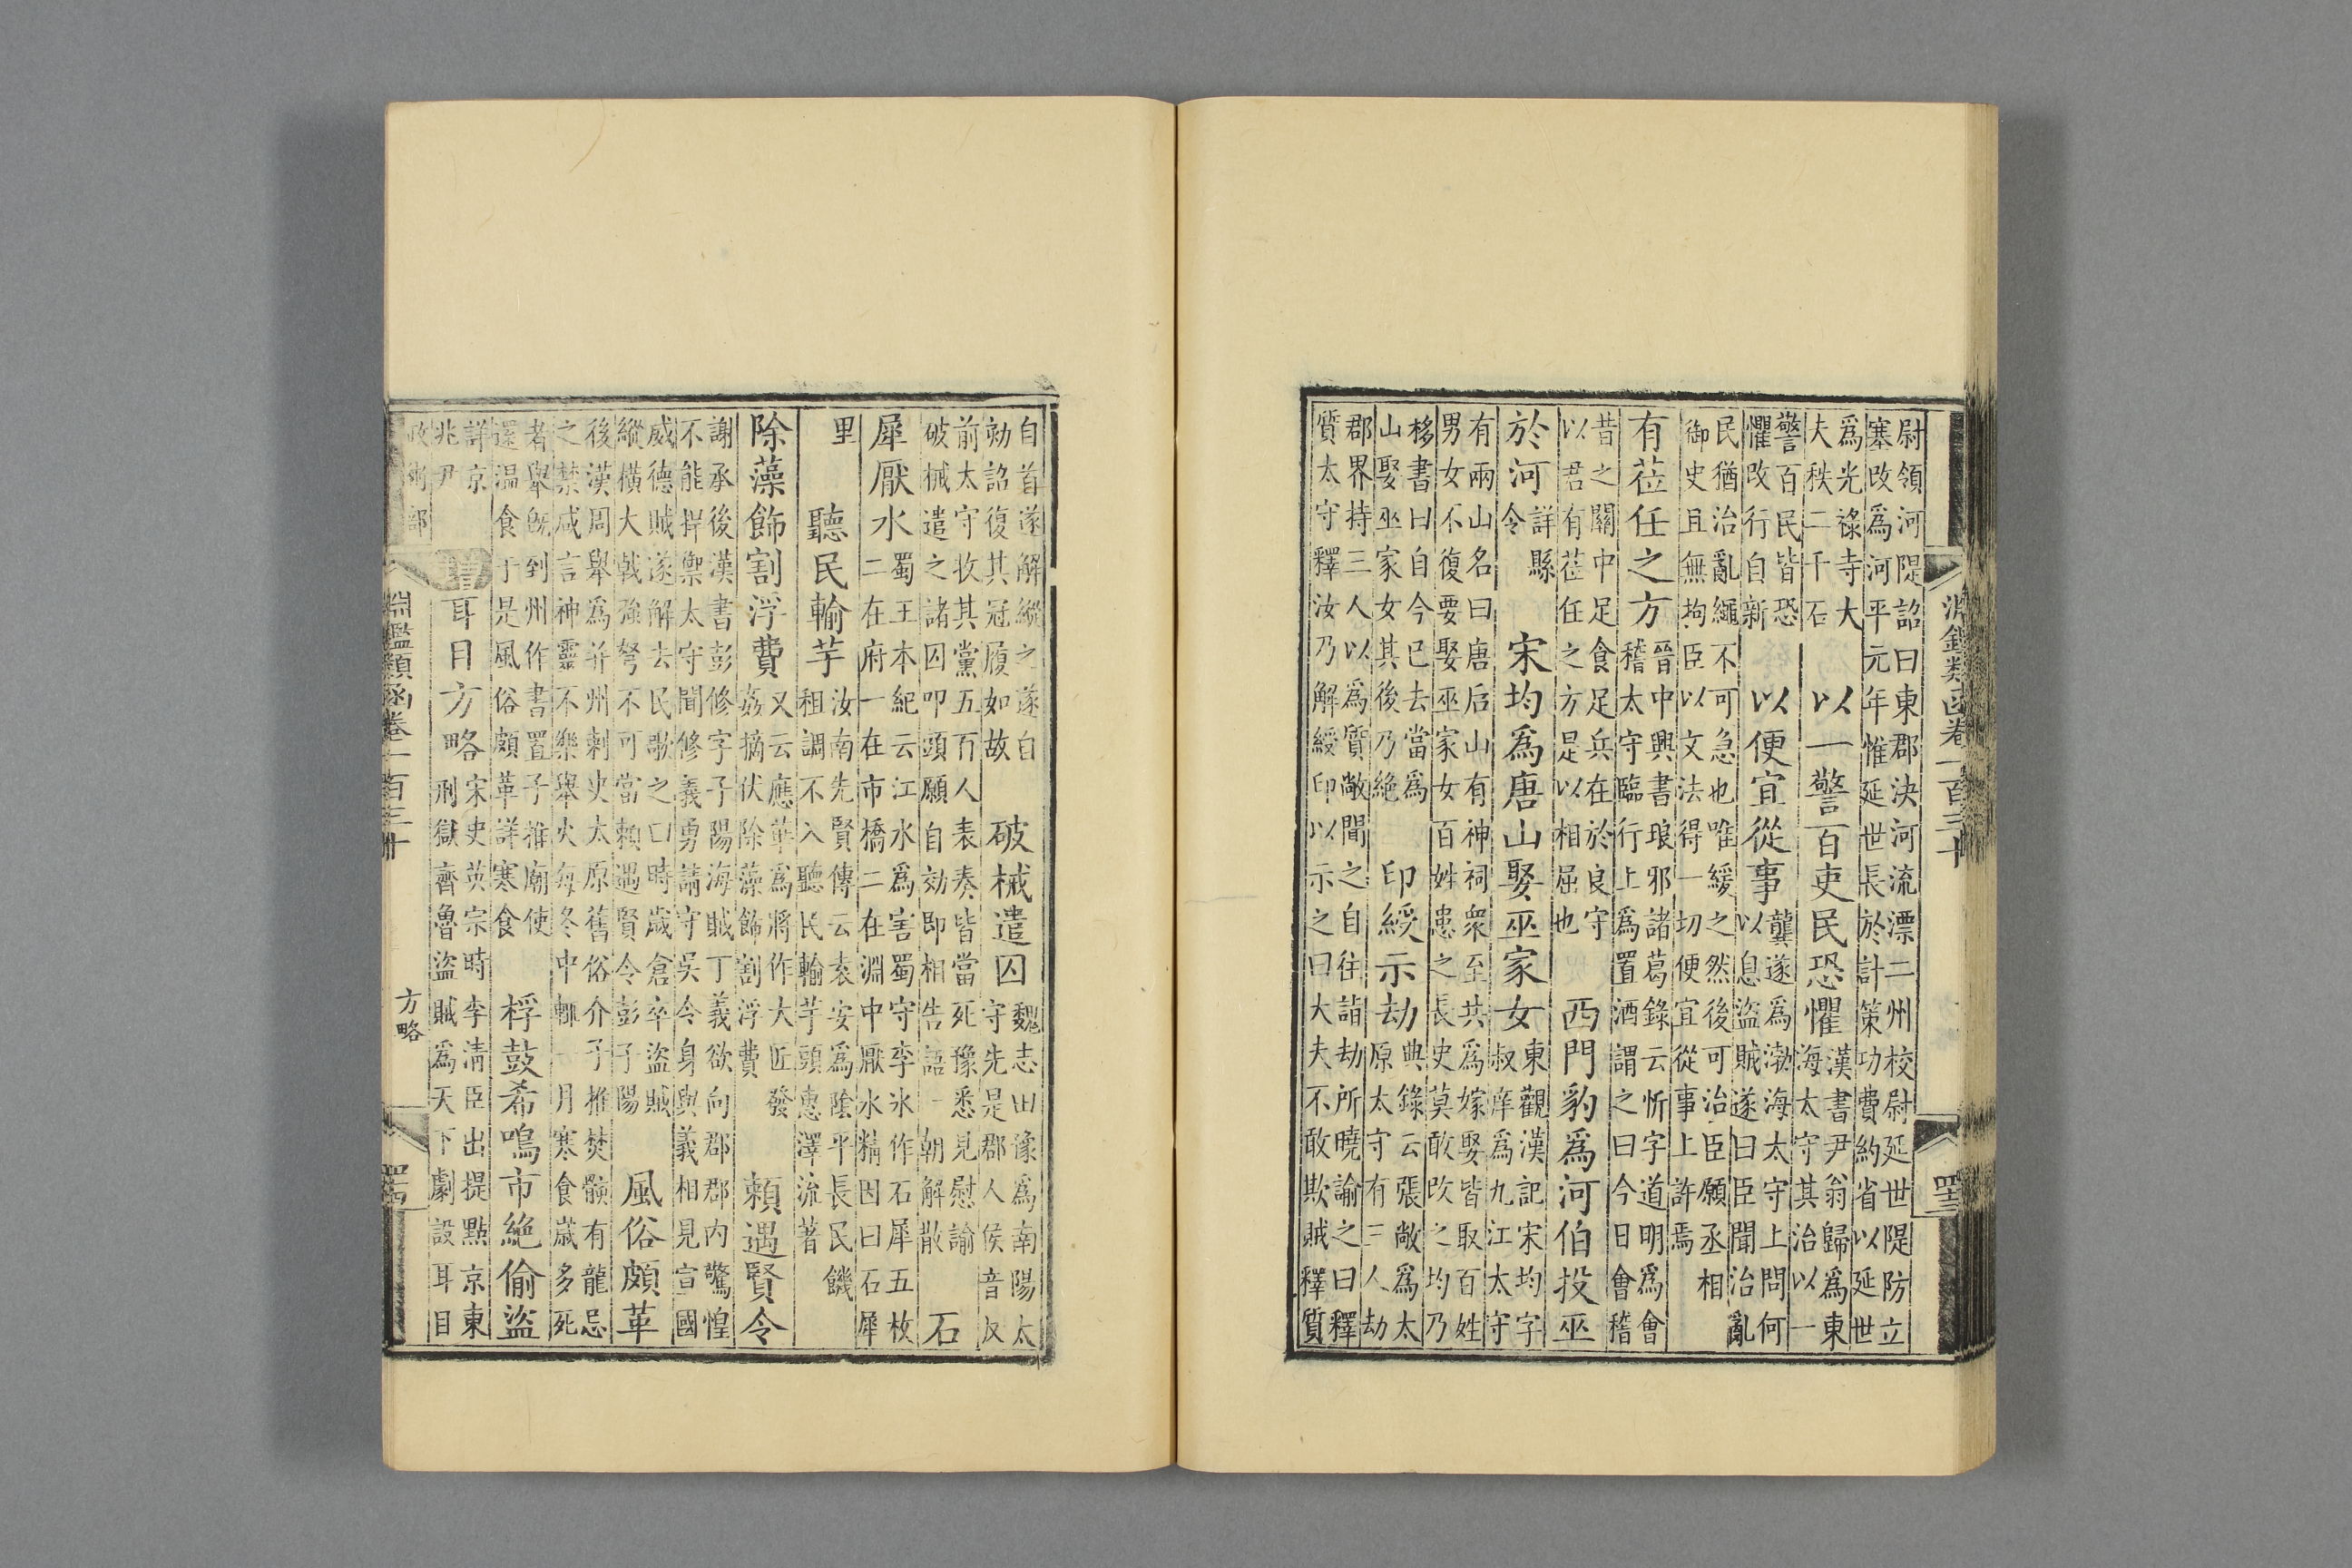 淵鑑類函卷一百三十
尉領河隄詔曰東郡決河流漂二州校尉延世隄防立
塞改爲河平元年惟延世長於計策功費約省以延世
爲光祿寺大
夫秩二千石
以一警百吏民恐懼
漢書尹翁歸爲東
海太守其治以一
警百民皆恐
懼改行自新
以便宜從事
龔遂爲渤海太守上問何
以息盜賊遂曰臣聞治亂
民猶治亂繩不可急也唯緩之然後可治臣願丞相
御史且無拘臣以文法得一切便宜從事上許焉
有莅任之方
晉中興書琅邪諸葛錄云忻字道明爲會
稽太守臨行上爲置酒謂之曰今日會稽
昔之關中足食足兵在於良守
以君有莅任之方是以相屈也
西門豹爲河伯投巫
於河
詳縣
令
宋均爲唐山娶巫家女
東觀漢記宋均字
叔庠爲九江太守
有兩山名曰唐后山有神祠衆至共爲嫁娶皆取百姓
男女不復要娶巫家女百姓患之長史莫敢改之均乃
移書曰自今已去當爲
山娶巫家女其後乃絶
印綬示劫
典錄云張敞爲太
原太守有三人劫
郡界持三人以爲質敞聞之自往詣劫所曉諭之曰釋
質太守釋汝乃解綬印以示之曰大夫不敢欺賊釋質
自首遂解縱之遂自
劾詔復其冠履如故
破械遣囚
魏志田豫爲南陽太
守先是郡人侯音反
前太守收其黨五百人表奏皆當死豫悉見慰諭
破械遣之諸囚叩頭願自効即相告語一朝解散
石
犀厭水
蜀王本紀云江水爲害蜀守李冰作石犀五枚
二在府一在市橋二在淵中厭水精因曰石犀
里
聽民輸芋
汝南先賢傳云袁安爲陰平長民饑
租調不入聽民輸芋頭惠澤流著
除藻飾割浮費
又云應華爲將作大匠發
姦摘伏除藻飾割浮費
賴遇賢令
謝承後漢書彭修字子陽海賊丁義欲向郡郡内驚惶
不能捍禦太守聞修義勇請守吳令身與義相見宣國
威德賊遂解去民歌之曰時歲倉卒盜賊
縱橫大戟強弩不可當賴遇賢令彭子陽
風俗頗革
後漢周舉爲并州刺史太原舊俗介子推焚骸有龍忌
之禁咸言神靈不樂舉火每冬中輒一月寒食歲多死
者舉旣到州作書置子推廟使
還温食于是風俗頗革詳寒食
桴鼓希鳴市絶偷盜
詳京
兆尹
增
耳目方略
宋史英宗時李清臣出提點京東
刑獄齊魯盜賊爲天下劇設耳目
政術部
淵鑑類函卷一百三十
方略